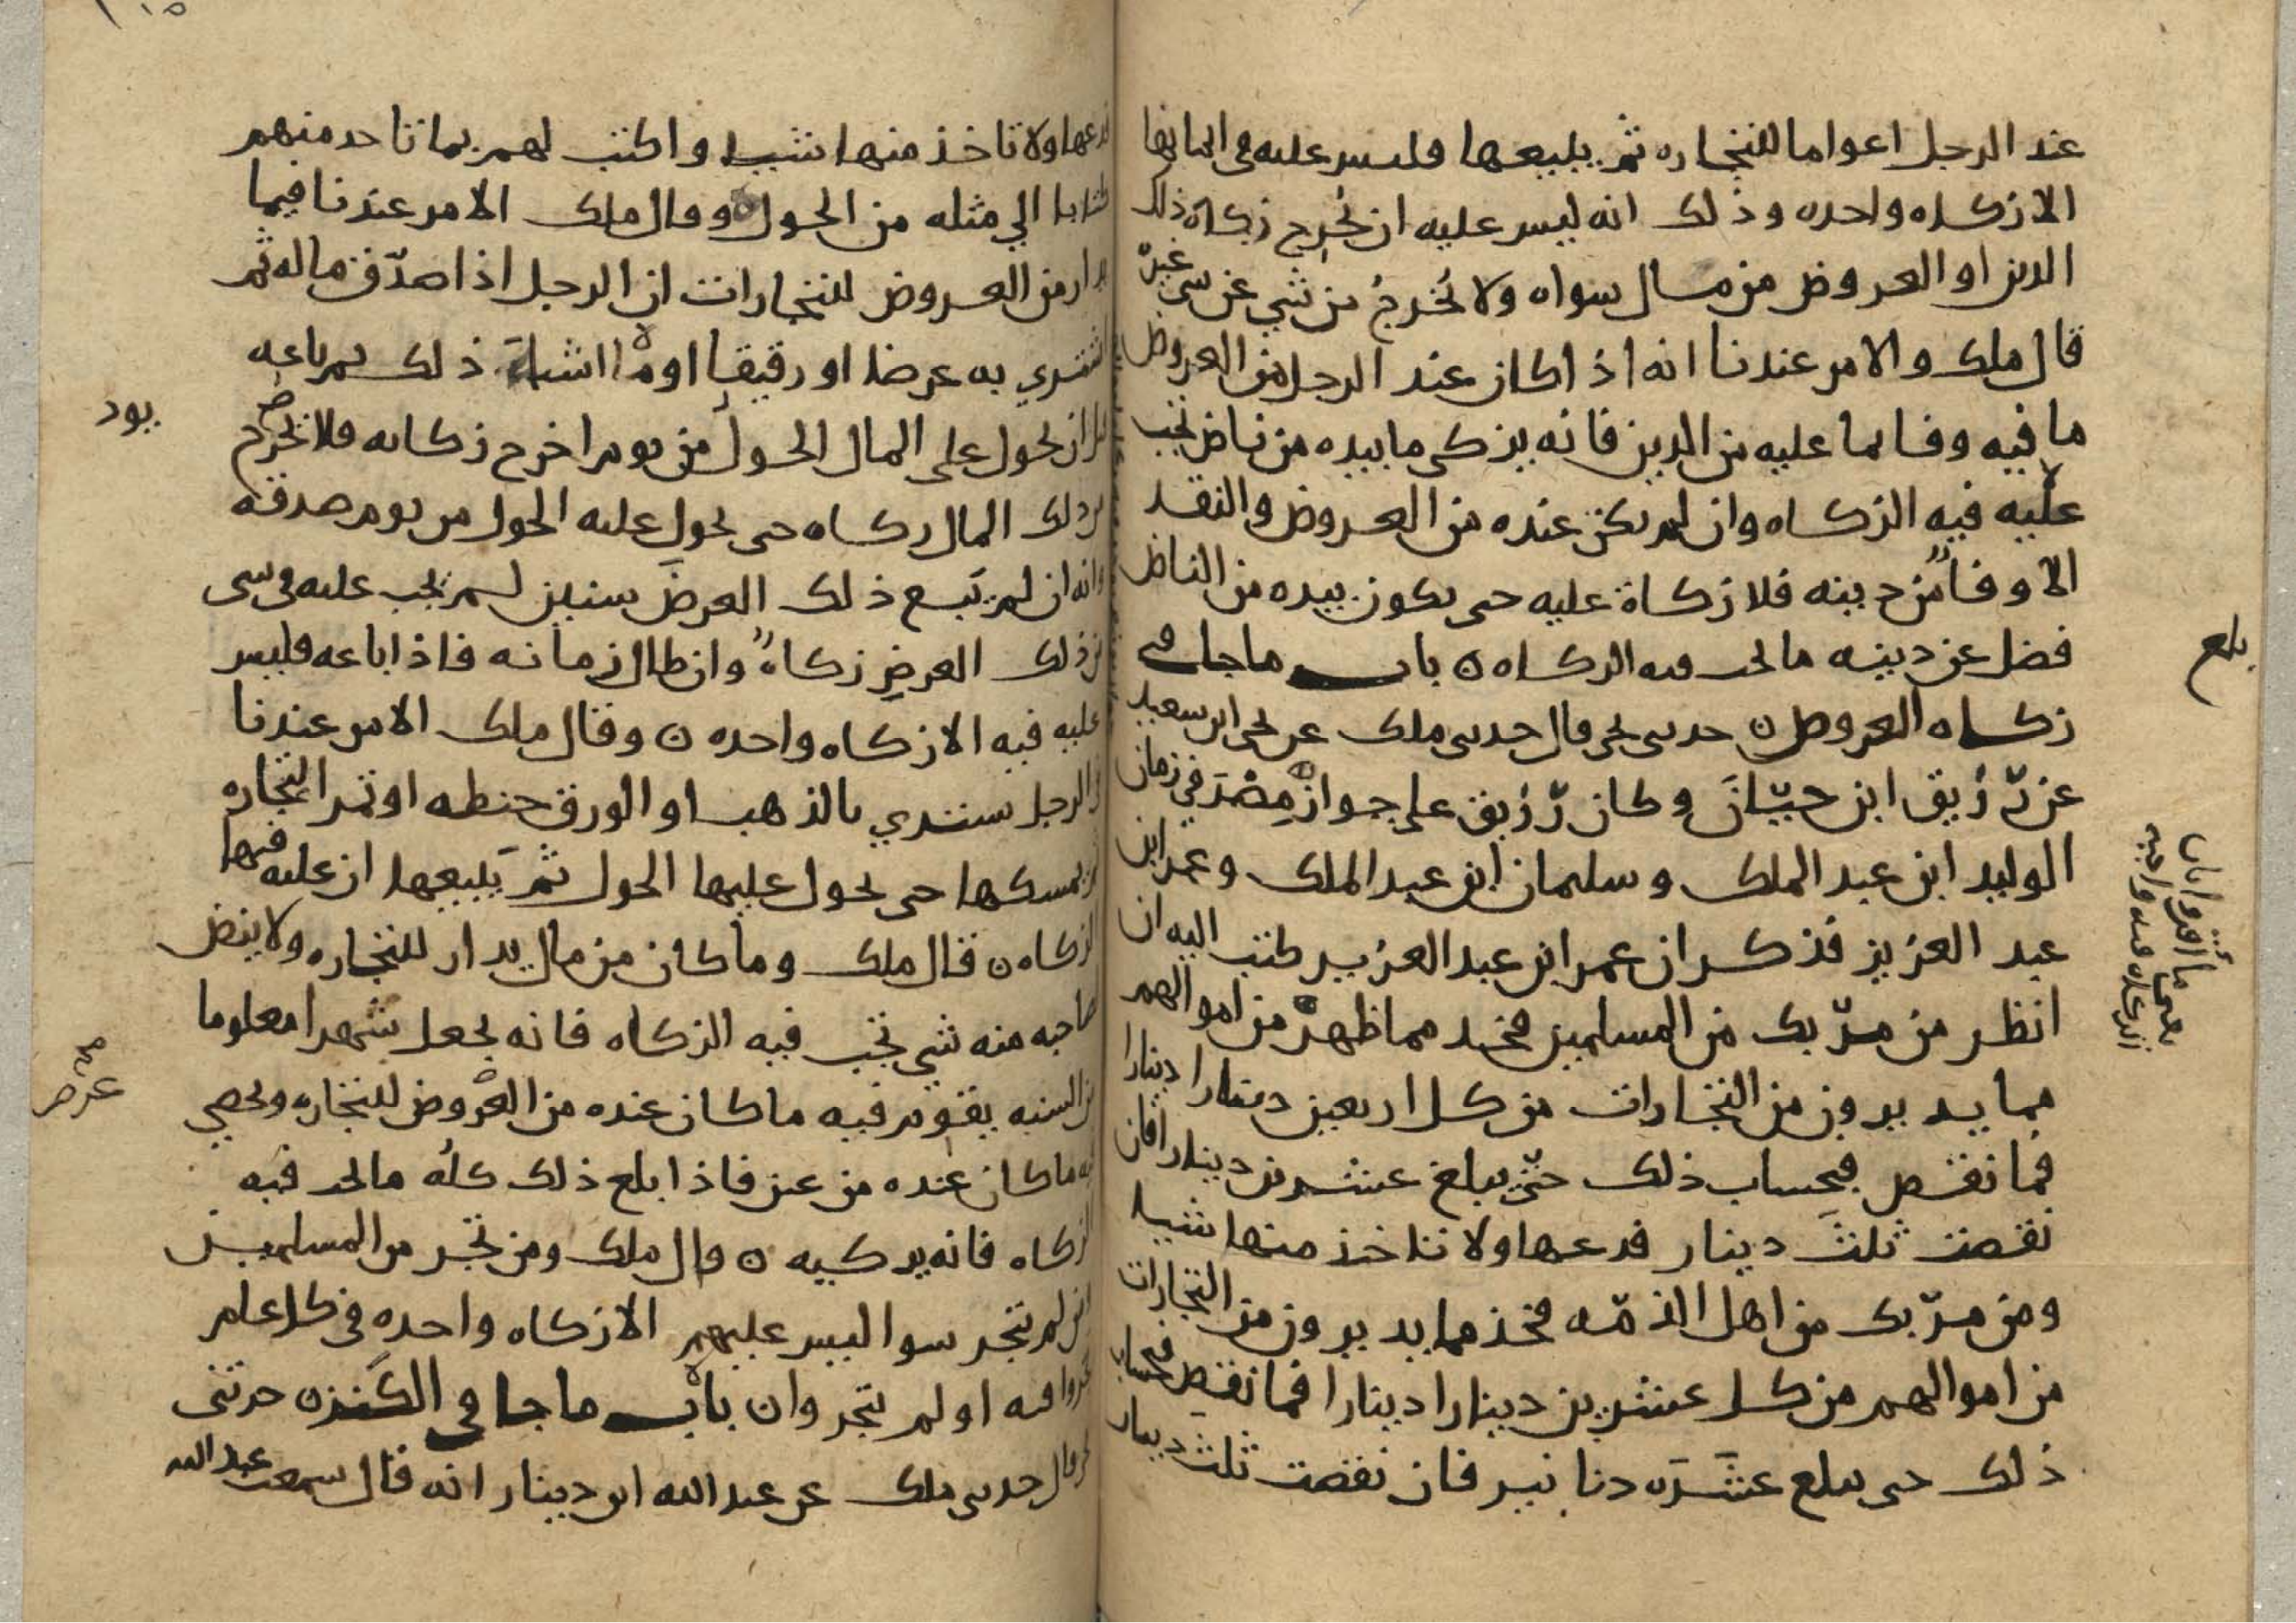 عند الرجل اعواما للتجاره ثم يبيعها فليس عليه في اثمانها
الا زكاه واحده وذلك انه ليس عليه ان يخرج زكاة ذلك
الدين او العروض من مال سواه ولا يُخرجُ من شي عن شي غيره
قال ملك والامر عندنا انه اذا كان عند الرجل من العروض
ما فيه وفا لما عليه من الدين فانه يزكي ما بيده من ناض تجب
عليه فيه الزكاه وان لم يكن عنده من العروض والنقد
الا وفاً من دينه فلا زكاة عليه حتى يكون بيده من الناض
فضل عن دينه ما تجب فيه الزكاه ن باب ما جا في
زكاه العروض ن حدثني يحيى قال حدثني ملك عن يحيى ابن سعيد
عن رُّزيق ابن حيّانَ وكان رُّزيق على جواز مِصْرَ في زمان
الوليد ابن عبد الملك وسليمان ابن عبد الملك وعمر ابن
عبد العزيز فذكر ان عمر ابن عبد العزيز كتب اليه ان
انظر من مرّ بك من المسلمين فخذ مما ظهر من اموالهم
مما يديرون من التجارات من كل اربعين دينارا دينارا
فما نقص فبحساب ذلك حتّى يبلغ عشرين دينارا فان
نقصت ثلثَ دينار فدعها ولا تاخذ منها شيا
ومن مرّ بك من اهل الذمّه فخذ مما يديرون من التجارات
من اموالهم من كل عشرين دينارا دينارا فما نقص فبحساب
ذلك حتى يبلع عشَرَه دنانير فان نقصت ثلث دينار
بلع
فدعها ولا تاخذ منها شيا واكتب لهم بما تاخذ منهم
كتابا الي مثله من الحول ن وقال ملك الامر عندنا فيما
يدار من العروض للتجارات ان الرجل اذا صدّق ماله ثم
اشتري به عرضا او رقيقا او ما اشبه ذلك ثم باعه
قبل ان يحول على المال الحول من يوم اخرج زكاته فلا يخرج
من ذلك المال زكاه حتى يحولَ عليه الحول من يوم صدقه
وانه ان لم يَبع ذلك العرضَ سنين لم يجب عليه في شي
من ذلك العرضِ زكاهٌ وان طال زمانه فاذا باعه فليس
عليه فيه الا زكاه واحده ن وقال ملك الامر عندنا
في الرجل يشتري بالذهب او الورق حنطه او تمرا للتجاره
ثم يمسكها حتى يحول عليها الحول ثم يَبيعها ان عليه فيها
الزكاه ن قال ملك وما كان من مال يدار للتجاره ولا ينض
لصاحبه منه شي تجب فيه الزكاه فانه يجعل شهرا معلوما
من السنه يقوم فيه ما كان عنده من العروض للتجاره ويحصي
فيه ما كان عنده من عين فاذا بلع ذلك كله ما تجب فيه
الزكاه فانه يزكيه ن قال ملك ومن تجر من المسلمين
ومن لم يتجر سوا ليس عليهم الا زكاه واحده في كل عام
تجروا فيه او لم يتجروا ن باب ما جا في الكَنز ن حدثني
يحيى قال حدثني ملك عن عبد الله ابن دينار انه قال سمعت عبد الله
عرض